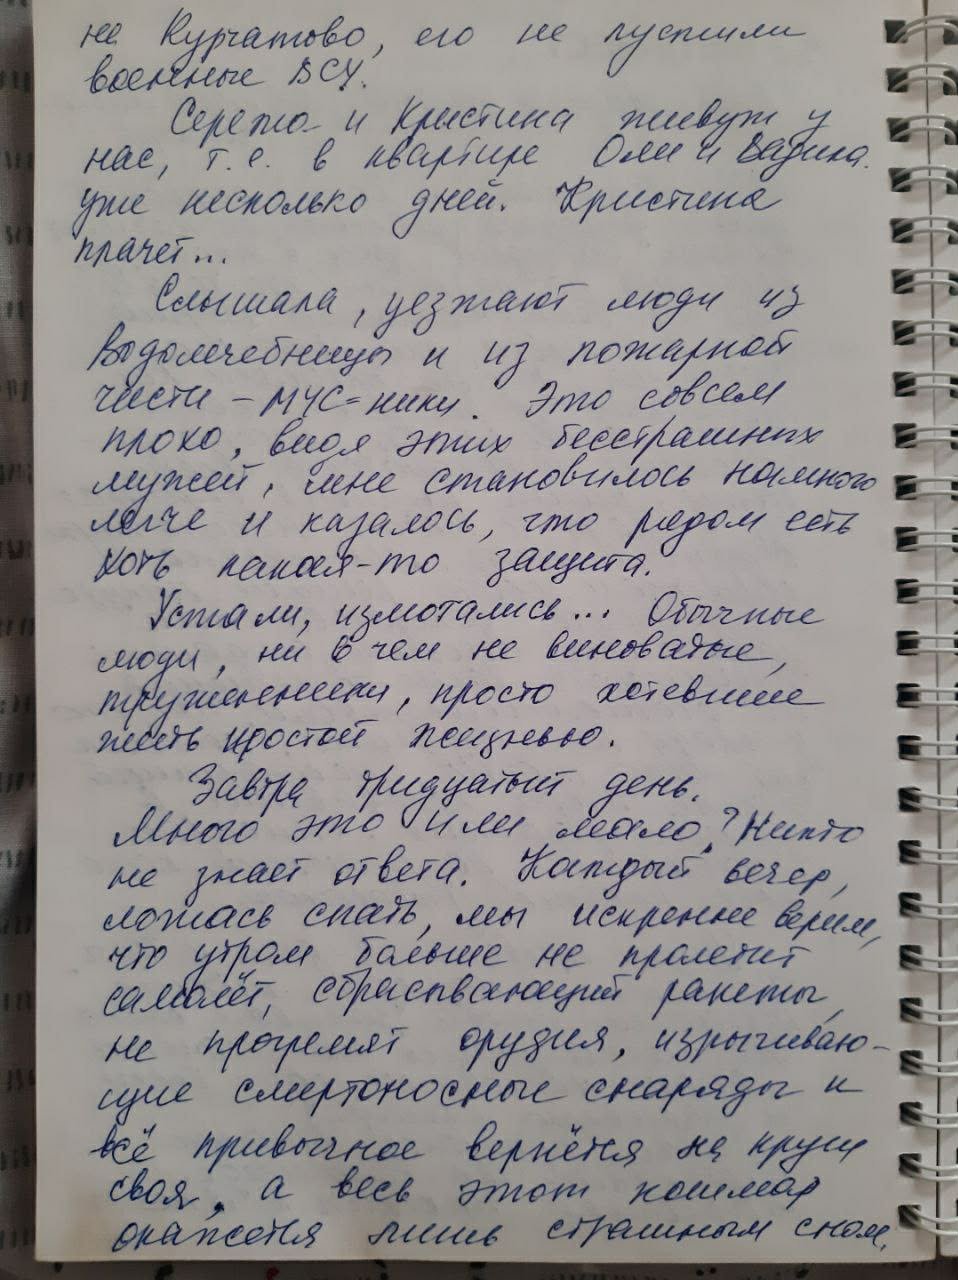 не Курчатово, его не пустили
военные ВСУ.
Сережа и Кристина живут у
нас, т.е. в квартире Оли и Вадика.
уже несколько дней. Кристина
плачет...
Слышала, уезжают люди из
Водолечебницы и из пожарной
части - МЧС=ники. Это совсем
плохо, видя этих бесстрашных
мужей, мне становилось намного
легче и казалось, что рядом есть
хоть какая-то защита.
Устали, измотались... Обычные
люди, ни в чем не виноватые,
труженники, просто хотевшие
жить простой жизнью.
Завтра тридцатый день.
Много это или мало? Никто
не знает ответа. Каждый вечер,
ложась спать, мы искренне верим,
что утром больше не пролетит
самолёт, сбрасывающий ракеты,
не прогремят орудия, изрыгиваю-
щие смертоносные снаряды и
всё привычное вернётся на круги
своя, а весь этот кошмар
окажется лишь страшным сном.